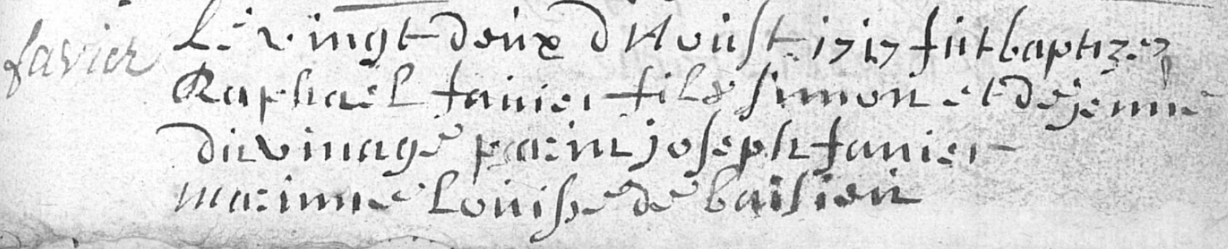 favier
Le vingt deux d'Aoust 1717 fut baptizez
Raphaël favier fils simon et de jenne
du vinage parin joseph favier
marinne Louisse de baisieu